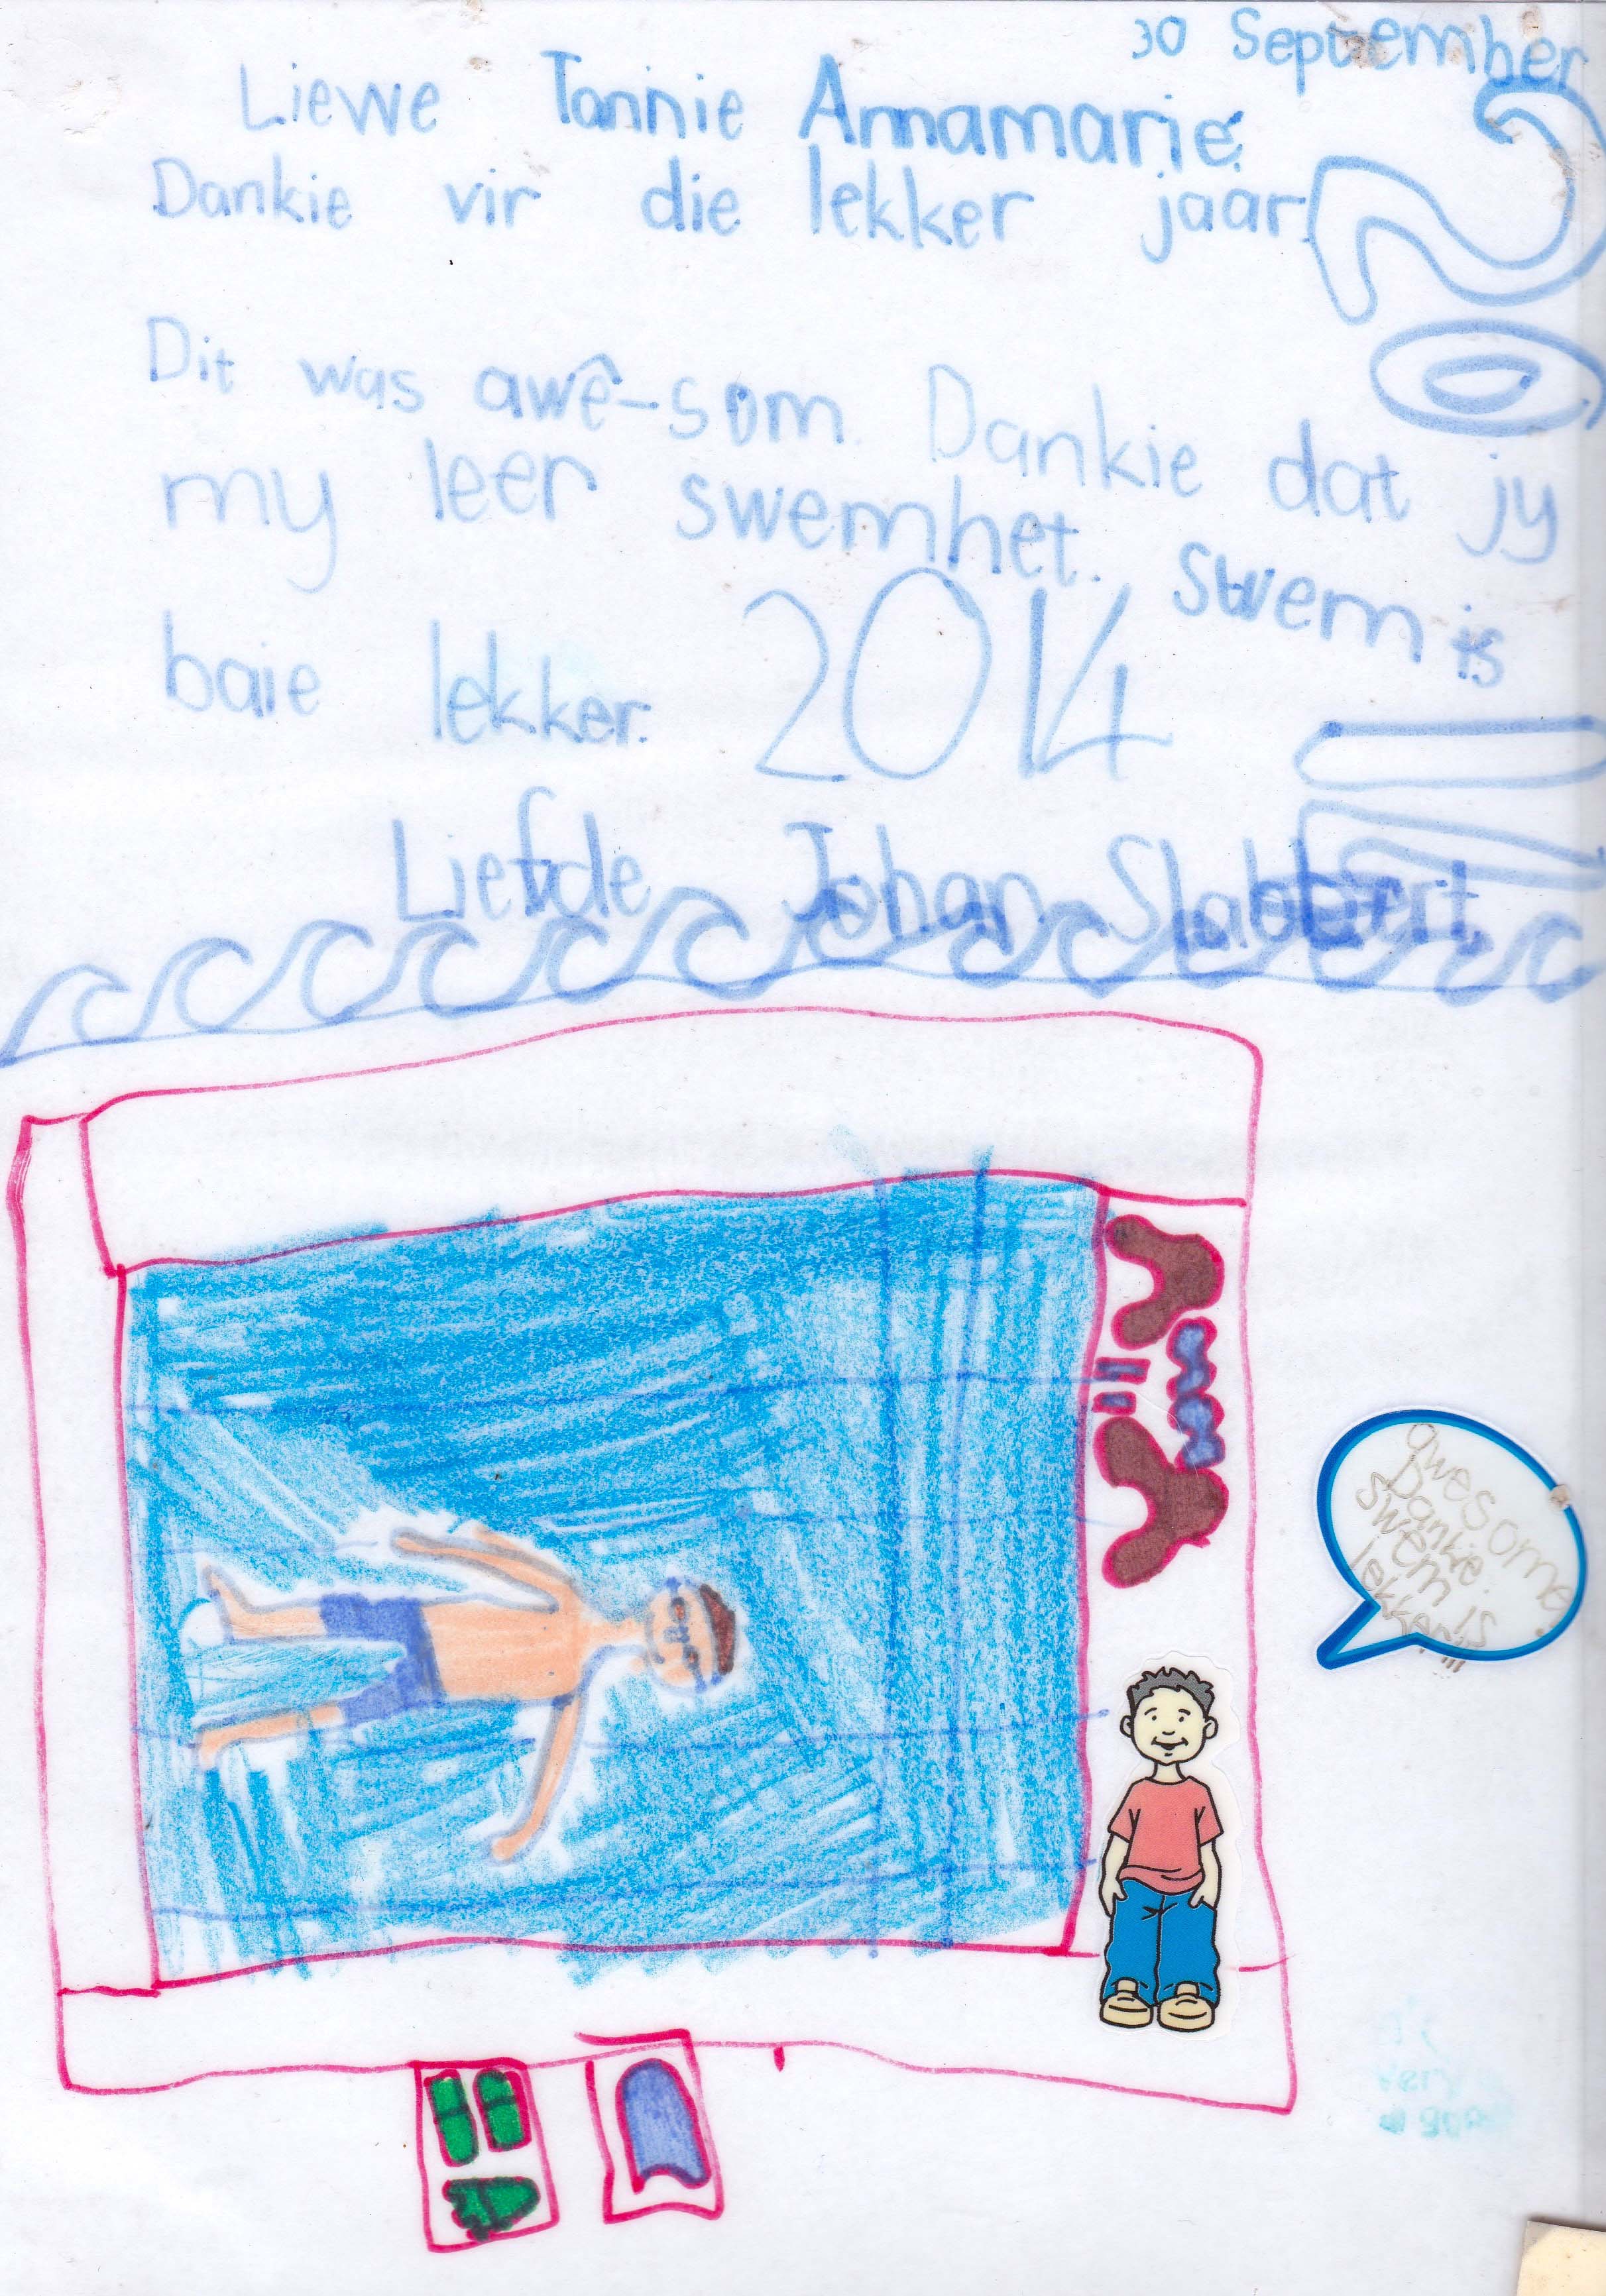 30 September
Liewe Tannie Annamarie
Dankie vir die lekker jaar.
Dit was awê-som. Dankie dat jy
my leer swemhet. swem is
baie lekker. 2014
Liefde Johan Slabbert
2014
awesome.
Dankie.
swem is
lekker!!!